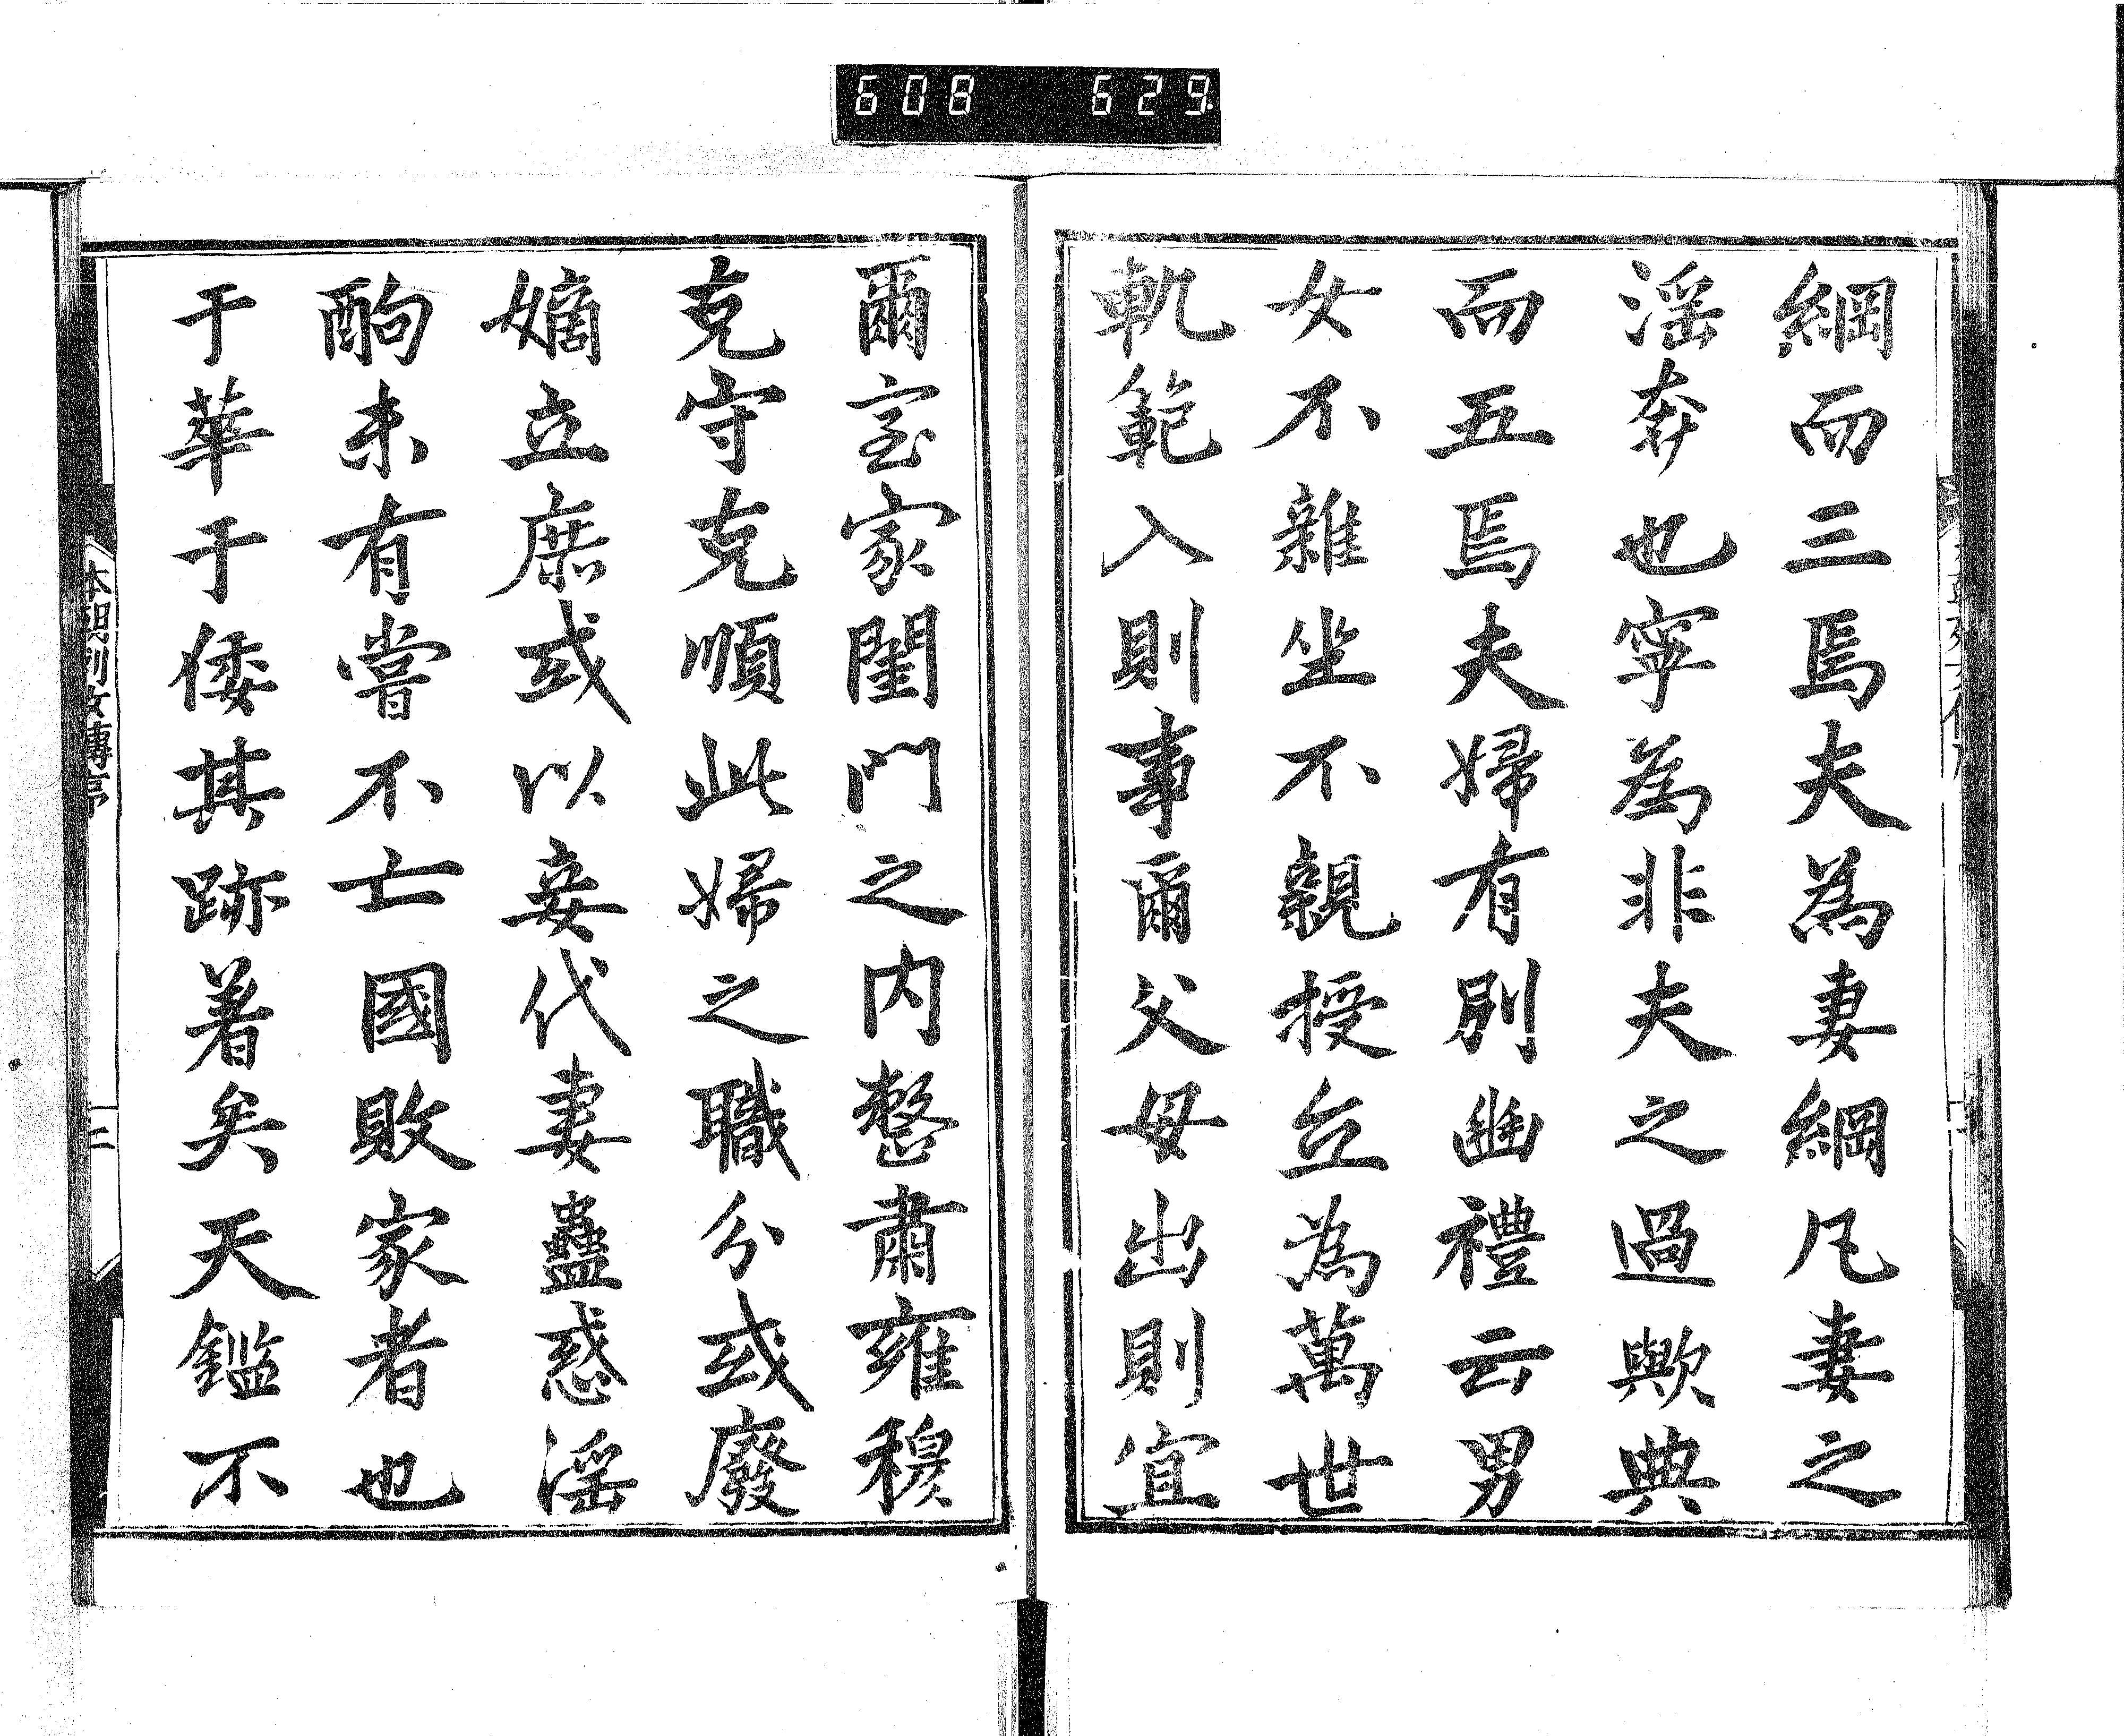 608 629
綱而三焉夫為妻綱凡妻之
淫奔也寧為非夫之過歟典
而五焉夫婦有別豳禮云男
女不雜坐不親授立為萬世
軌範入則事爾父母出則宜
爾室家閨門之内整肅雍穆
克守克順此婦之職分或廢
嫡立庶或以妾代妻蠱惑淫
酗未有嘗不亡國敗家者也
于華于倭其跡著矣天鑑不
本朝列女傳序
三